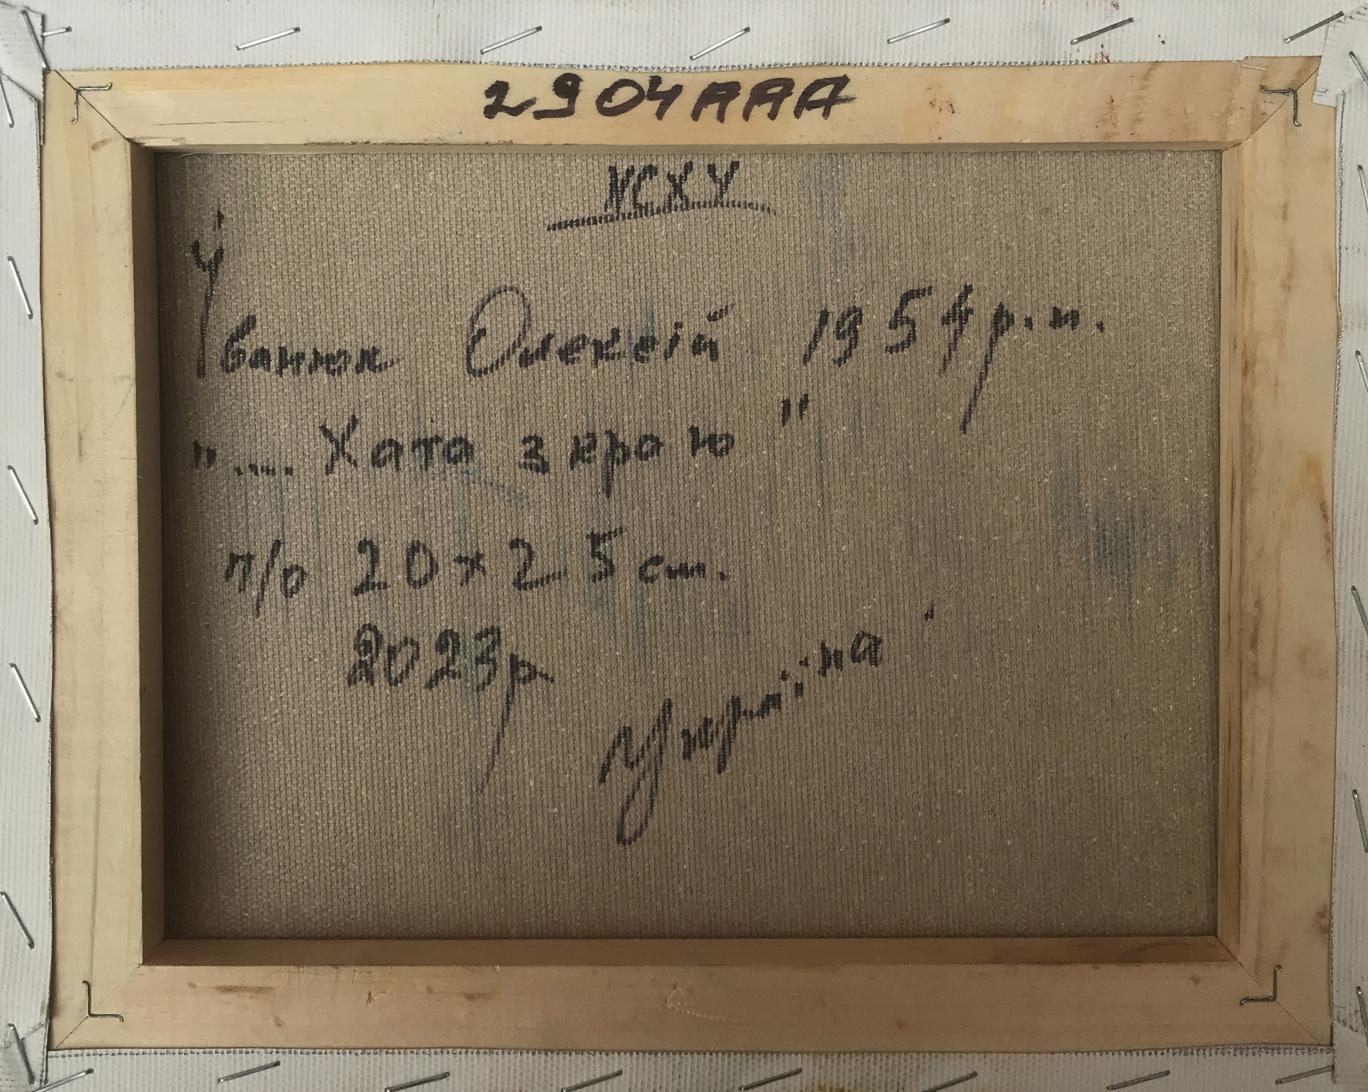 2904AAA
НСХУ
Іванюк Олексій 1954 р.н.
".... Хата з краю"
п/о 20х25 см.
2023р
Україна